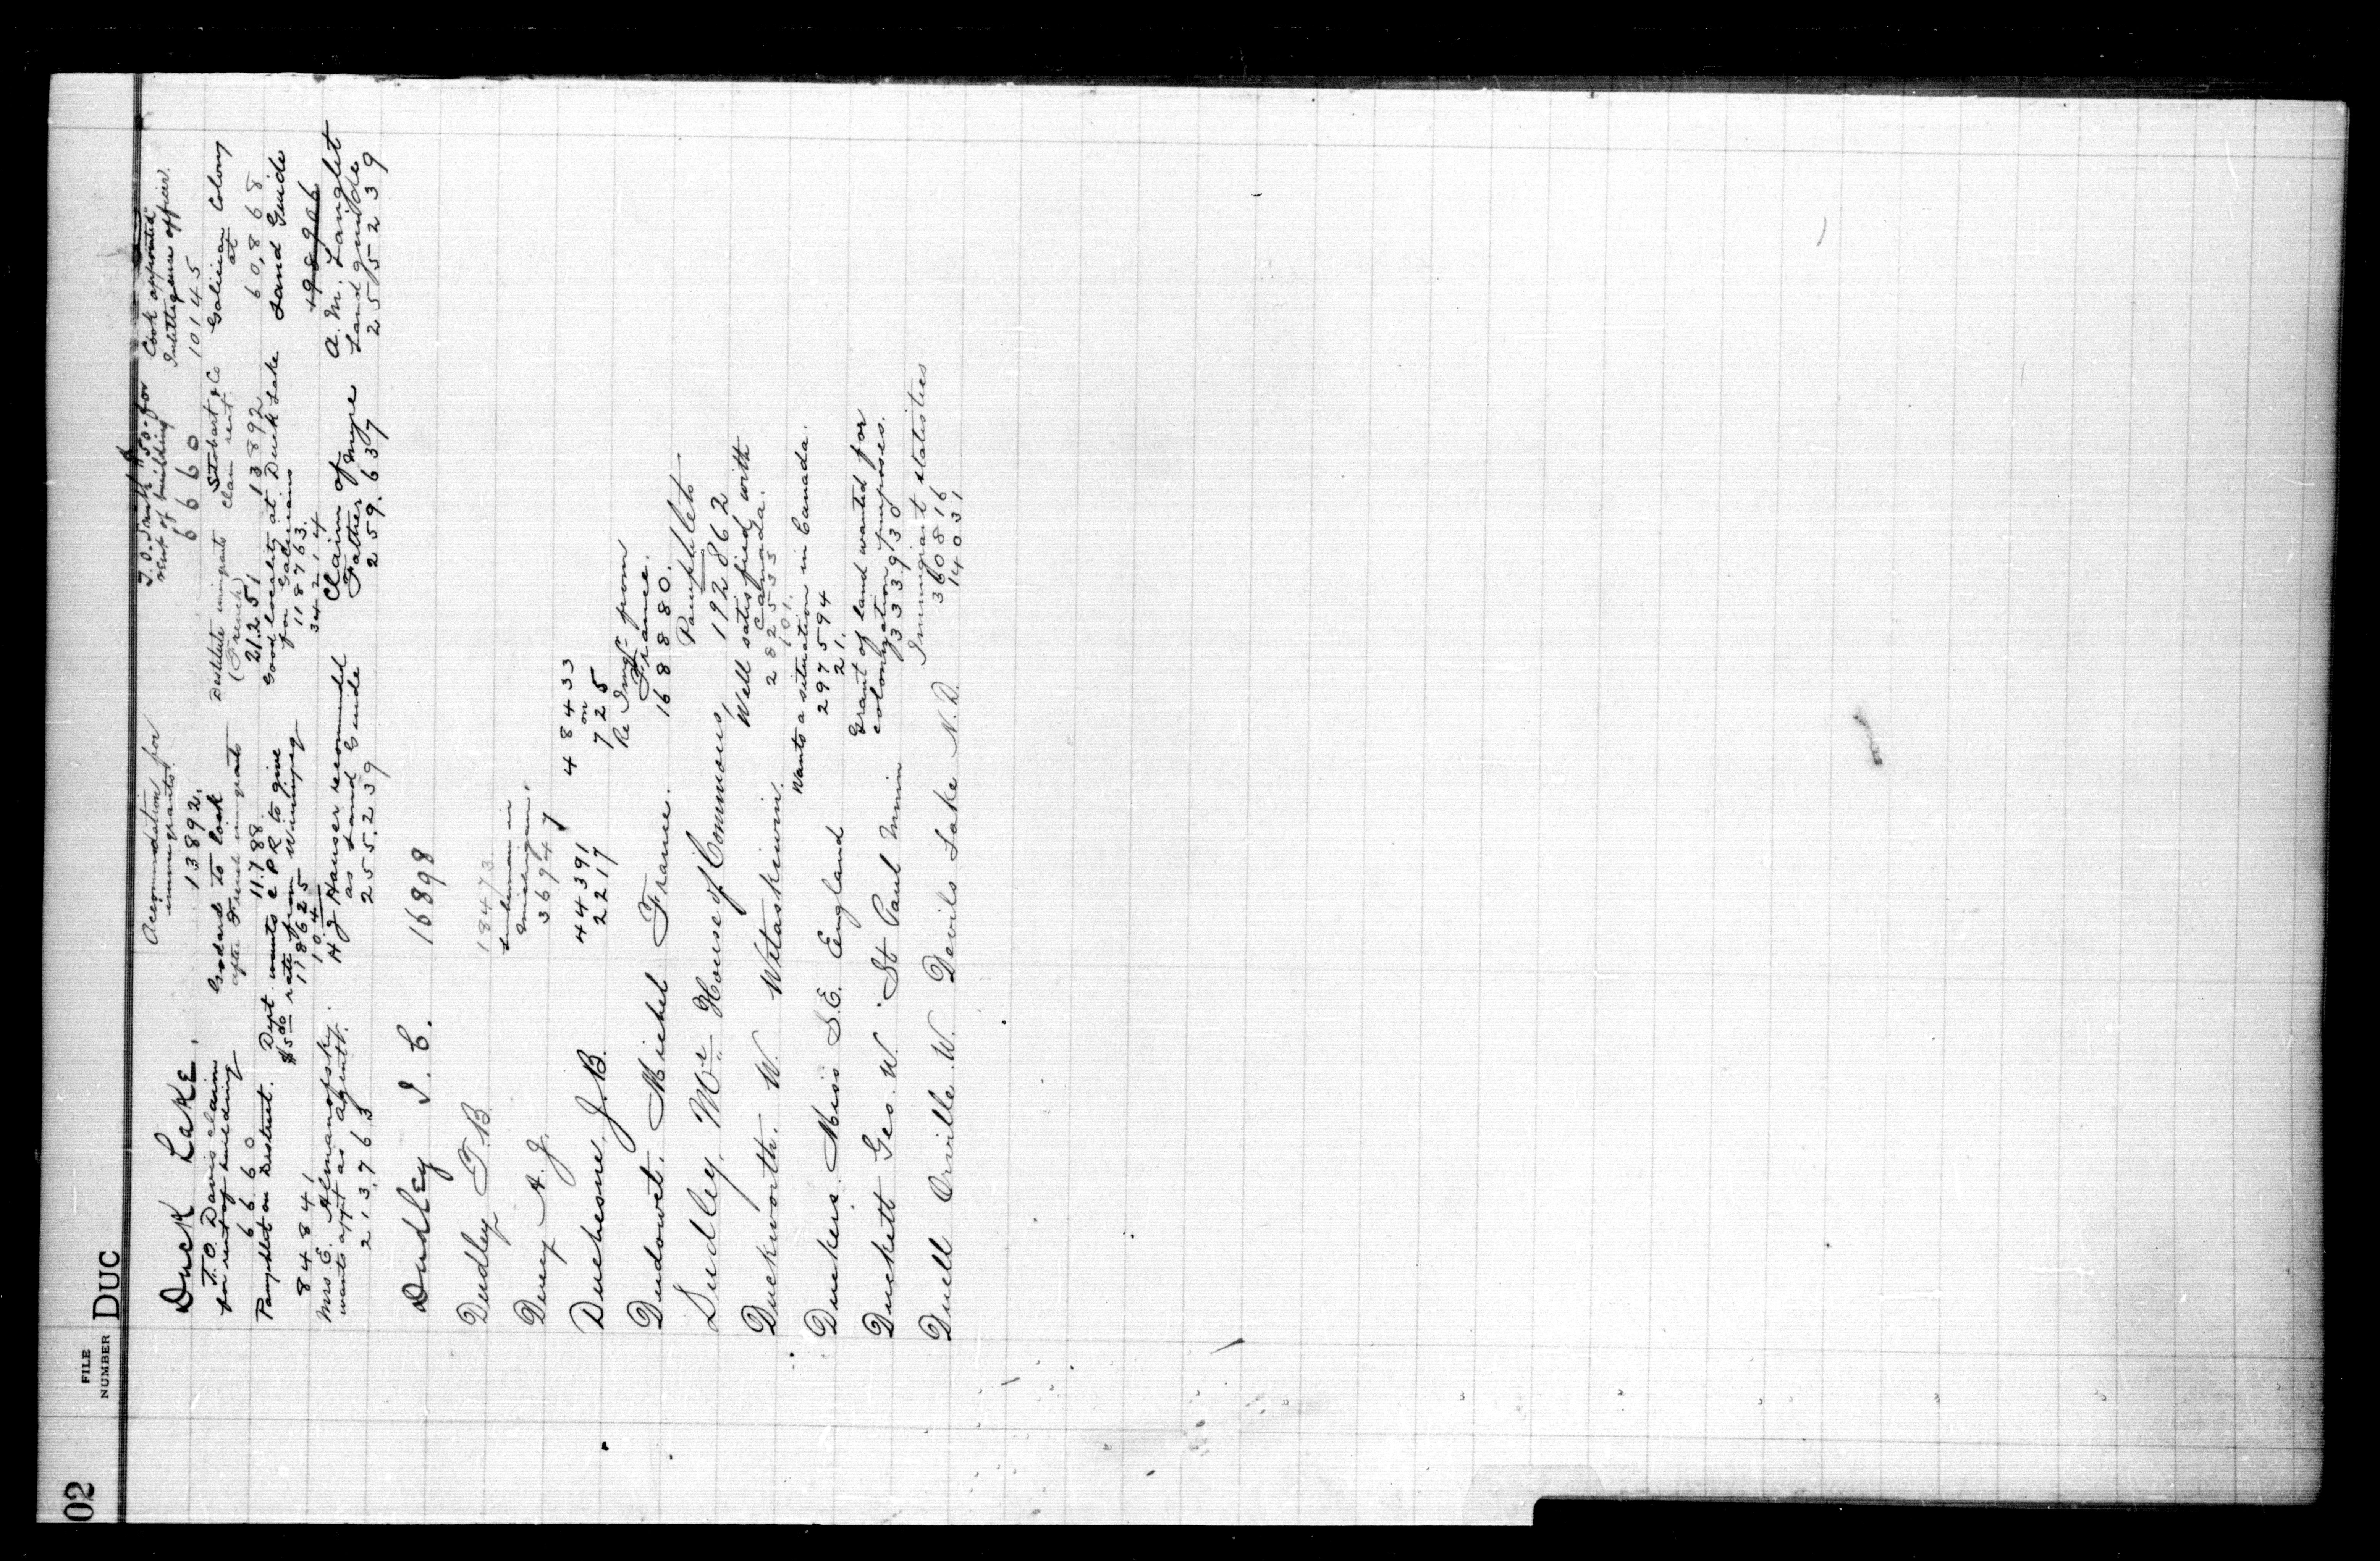 02
FILE NUMBER DUC
Duck Lake.
Accommodation for immigrants.
13892.
T.O. Davis $50- for rent of building
6660
Cook appointed Intelligence officer.
10145
T.O. Davis claims for rent of building
6660
Goddard to look after French immigrants
11788.
Destitute immigrants (French)
21251
Stobart & Co claim rent.
13892
Galician Colony at
60,868
Pamphlet on District.
84841
Dept wants CPR to give $5.00 rate from Winnipeg
118625
104
Good locality at Duck Lake for Galicians
118763.
34214
Land Guide
198906
Mrs E. wants appt as agent.
213763
H J Hauser recommended as Land Guide
255239
Claim of Father Myre
259.637
A. M. Langlet Land guide
255239
Dudley J. C. 16898
Dudley F.B. 18473.
Ducey A. J. Lumberman in Michigan.
36947
Duchesne, J.B. 44391 48433
2217 on 725
Dudowet. Michel France. Re Imgn from France.
168880.
Dudley, Mr House of Commons, Pamphlets
192862
Duckworth. W. Wetaskiwin. Well satisfied with Canada.
282533
101.
Duckers. Miss S.E. England Wants a situation in Canada.
297594
21.
Duckett Geo. W. St Paul Minn Grant of land wanted for colonization purposes.
333930
Duell Orville W. Devils Lake N.D. Immigrant statistics
360816
14031